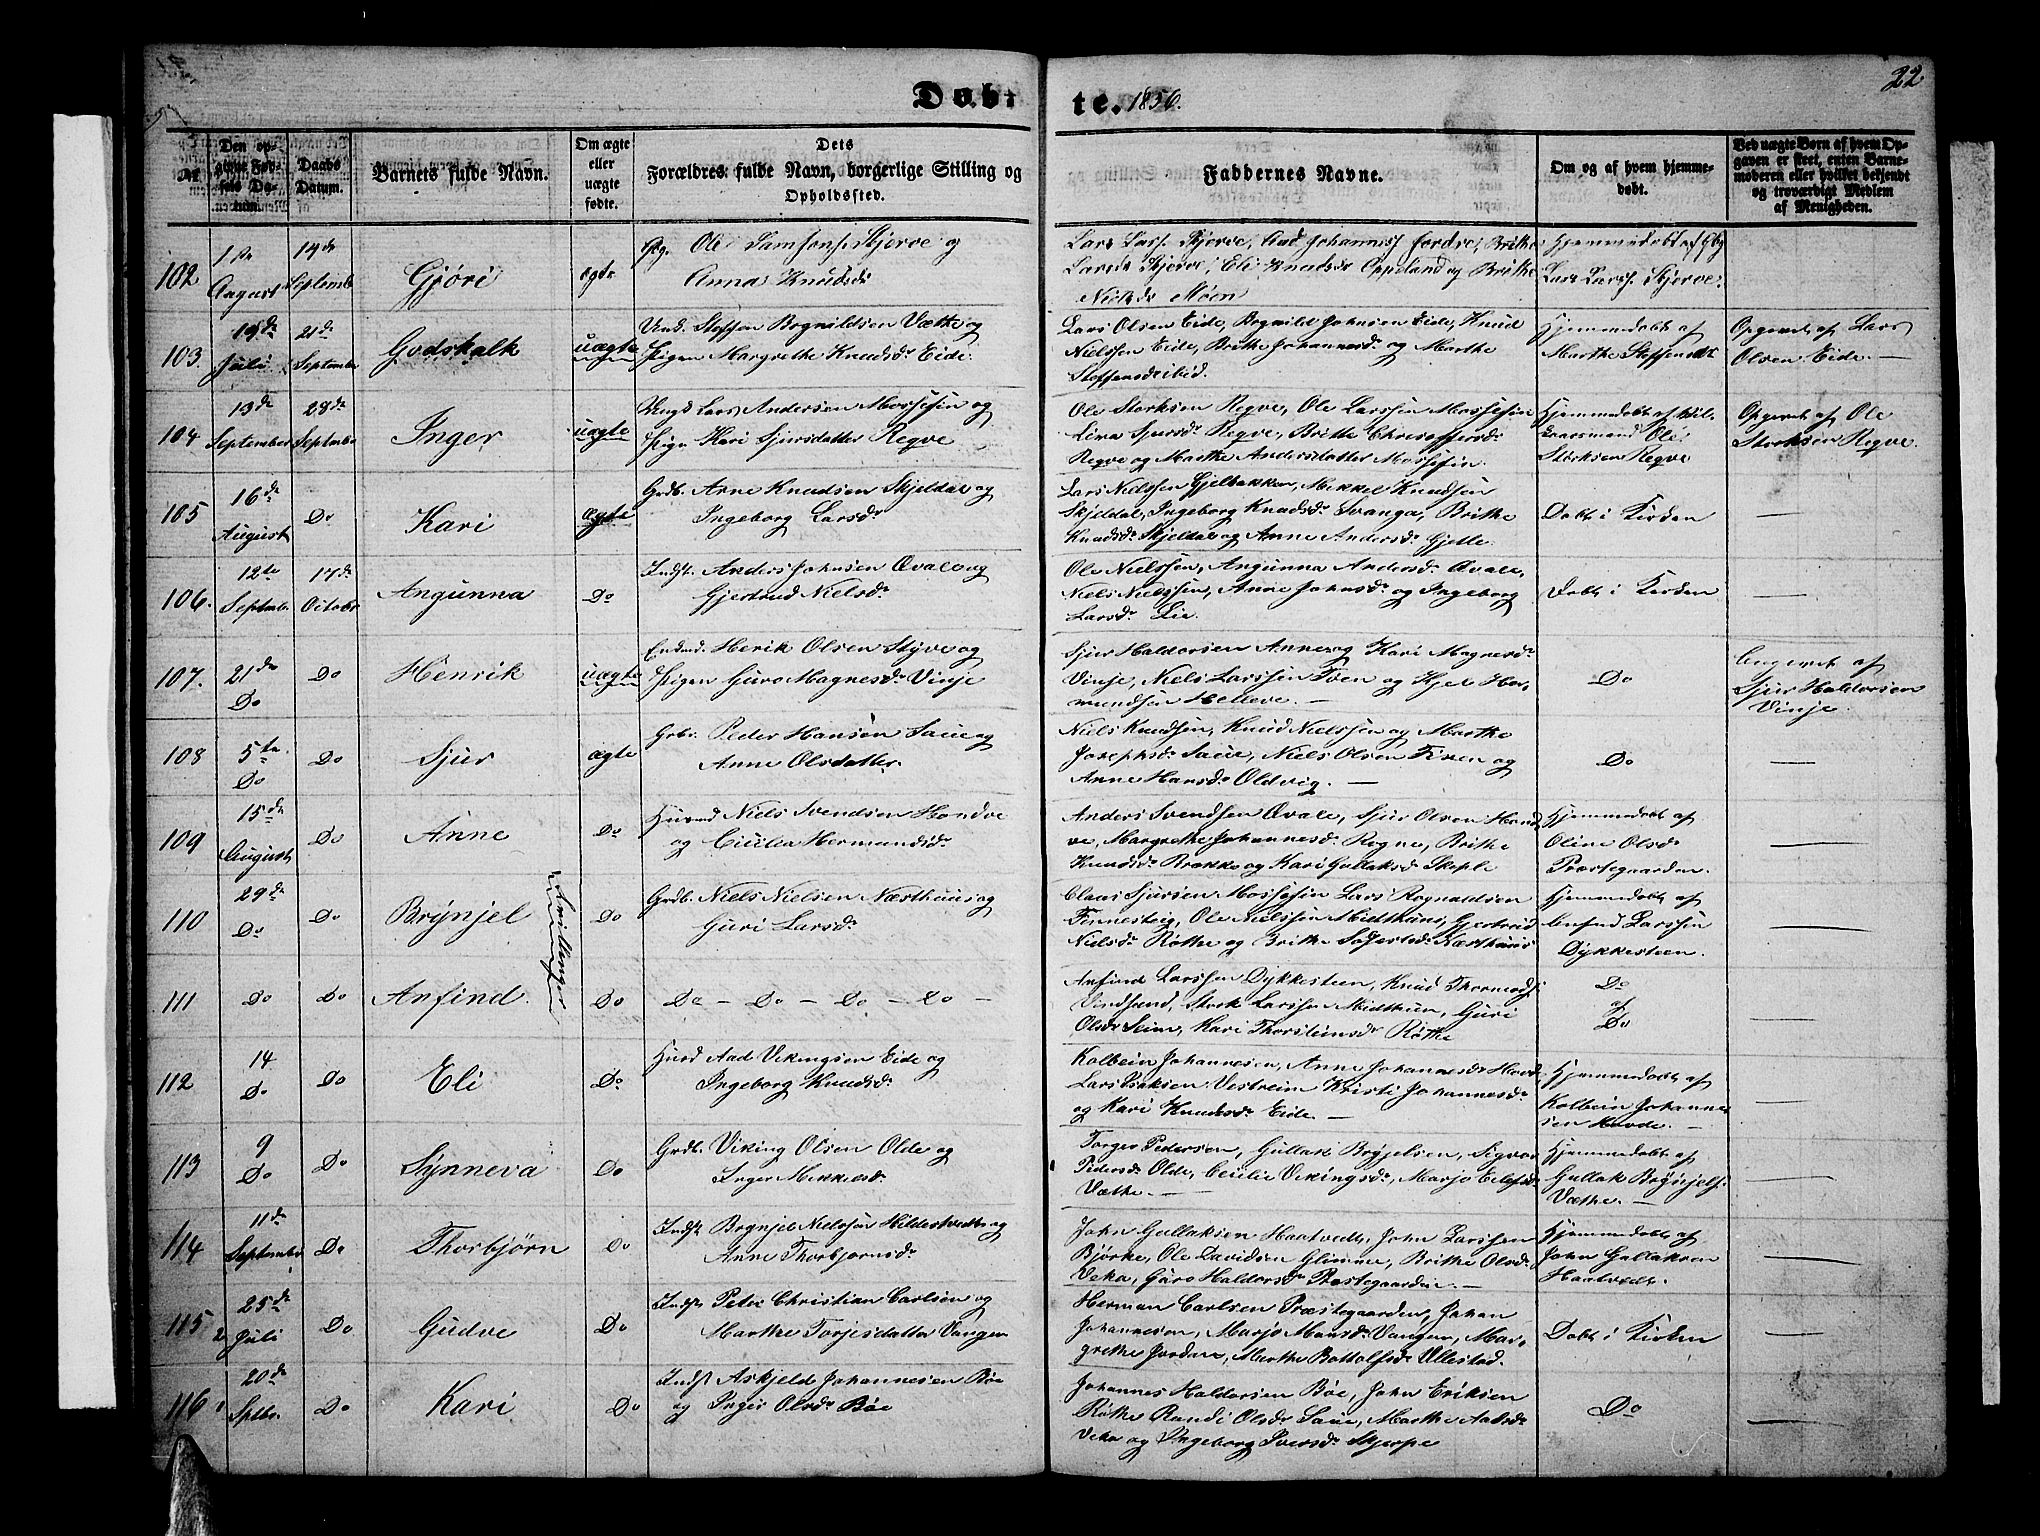 Døbte. 1856.
22.
№
Den opgivne Fødsels Datum.
Daabs Datum.
Barnets fulde Navn.
Om ægte eller uægte fødte.
Dets Forældres fulde Navn, borgerlige Stilling og Opholdssted.
Faddernes Navne.
Om og af hvem hjemmedøbt.
Ved uægte Børn af hvem Opgaven er skeet, enten Barnemoderen eller hvilket bekjendt og troværdigt Medlem af Menigheden.
102
August
14de
September
Gjøri
ægte
Ole Samsons. Skjerve og
Anna Knudsdr
Lars Larss. Skjerve, Aad Johanness Fordre, Brithe
Larsdr Skjerve, Eli Knudsdr Oppeland og Brithe
Nielsdr Moen
Hjemmedøbt af
Lars Larss. Skjerve.
103.
19de
Juli
21de
September
Godskalk
uægte
Ungk. Steffen Bognildsen Væthe og
Pigen Margrethe Knudsdr Eide.
Lars Olsen Eide, Bognild Johnsen Eide, Knud
Nielssen Eide, Brithe Johannesdr og Marthe
Steffensdr ibid.
Hjemmedøbt af
Marthe Steffensdr
Opgivet af Lars
Olsen Eide. —
104
13de
September
28de
Septmbr
Inger
uægte
Ungk Lars Andersen Mossefin og
Pign Kari Sjursdatter Reqve
Ole Storksen Reqve, Ole Larssen Mossefin
Sjursdr Reqve, Brithe Christoffersdr
Reqve og Marthe Andersdatter Mossefin.
Hjemmedøbt af
Ole
Storksen Reqve
Opgivet af Ole
Storksen Reqve.
105
16de
August
Do
Kari
ægte
Grdb. Arne Knudsen Skjeldal og
Ingeborg Larsdr
Lars Nielssen Gjelbakken, Mikkel Knudsen
Skjeldal, Ingeborg Knudsdr Svanga, Brithe
Knudsdr Skjeldal og Anne Andersdr Gjelle.
Døbt i Kirken
—
106.
12te
Septmbr
17de
Octobr
Angunna
Do
Indst. Anders Johnsen Qvale og
Gjertrud Nielsdr
Ole Nielssen, Angunna Andersdr Qvale,
Niels Nielssen, Anne Johnsdr og Ingeborg
Larsdr Lie.
Døbt i Kirken
—
107.
21de
Do
Do
Henrik
uægte
Enkmd. Herik Olsen Styve og
Pigen Guro Magnesdr Vinje
Sjur Haldorsen Anne og Kari Magnesdr
Vinje, Niels Larssen Tven og Kjel Her-
mundsen Helleve. —
Do
Angivet af
Sjur Haldorsen
Vinje.
108
5te
Do
Do
Sjur
ægte
Grbr. Peder Hansen Saue og
Anne Olsdatter
Niels Knudsen, Knud Nielssen og Marthe
Josephsdr Saue, Niels Olsen Finen og
Anne Hansdr Oldvig. —
Do
—
109
15de
August
Do
Anne
Do
Husmd Niels Svendsen Hondve
og Cicilia Hermundsdr
Anders Svendsen Qvale, Sjur Olsen Hond-
ve, Margrethe Johannesdr Rogne, Brithe
Knudsdr Brække og Kari Gullaksdr Skiple
Hjemmedøbt af
Oline Olsdr
Præstegaarden.
—
110
29de
Do
Do
Brynjel
Tvillinger
Do
Grdb. Niels Nielsen Næsthuus og
Guri Larsdr
Claus Sjursen Mossefin Lars Rognaldsen
Finnesteig, Ole Nielssen Midthuus, Gjertrud
Nielsdr Røthe og Brithe Næsthuus
Hjemmedøbt af
Anfind Larssen
Dykkesteen.
—
111
Do
Do
Anfind.
Do
Do — Do — Do — Do —
Anfind Larssen Dykkesteen, Knud Thormods.
Vindsand, Stork Larssen Midthun, Guri
Olsdr Seim, Kari Thorsteinsdr Røthe
Do
af
Do
—
112
14
Do
Do
Eli
Do
Husd Aad Vikingsen Eide og
Ingeborg Knudsdr
Kolbein Johannesen, Anne Johannesdr
Lars Isaksen Vestreim Kristi Johannesdr
og Kari Knudsdr Eide. —
Hjemmedøbt af
Kolbein Johannes
sen Hovde. —
—
113
9
Do
Do
Synneva
Do
Grdb. Viking Olsen Olde og
Inger Mikkelsdr
Torger Pedersen, Gullak Brynjelsen, Sigvor
Pedersdr Olde, Cicilie Vikingsdr, Marjo Eilefsdr
Væthe. —
Hjemmedøbt af
Gullak Brynjels.
Væthe. —
—
114
11de
September
Do
Thorbjørn
Do
Indst Brynjel Nielssen Hildestvedt og
Anne Thorbjørnsdr
John Gullaksen Haatvedt, John Larssen
Bjørke, Ole Davidsen Glimme, Brithe Olsdr
Veka, Guro Haldorsdr Præstegaarden. —
Hjemmedøbt af
John Gullaksen
Haatvedt.
—
115
25de
Juli
Do
Gudve
Do
Indst Peter Christian Carlsen og
Marthe Torjesdatter Vangen
Herman Carlsen Præstegaarden, Johan
Johannesen, Marjo Monsdr Vangen, Mar-
grethe Jordan, Marthe Bottolfsdr Ullestad.
Døbt i Kirken
—
116
20de
Sptbr.
Do
Kari
Do
Indst Askjeld Johannesen Bøe
og Inger Olsdr Bøe
Johannes Haldorsen Bøe, John Eriksen
Røthe Randi Olsdr Saue, Marthe Aadsdr
Veka og Ingeborg Iversdr Skjerpe
Do
—